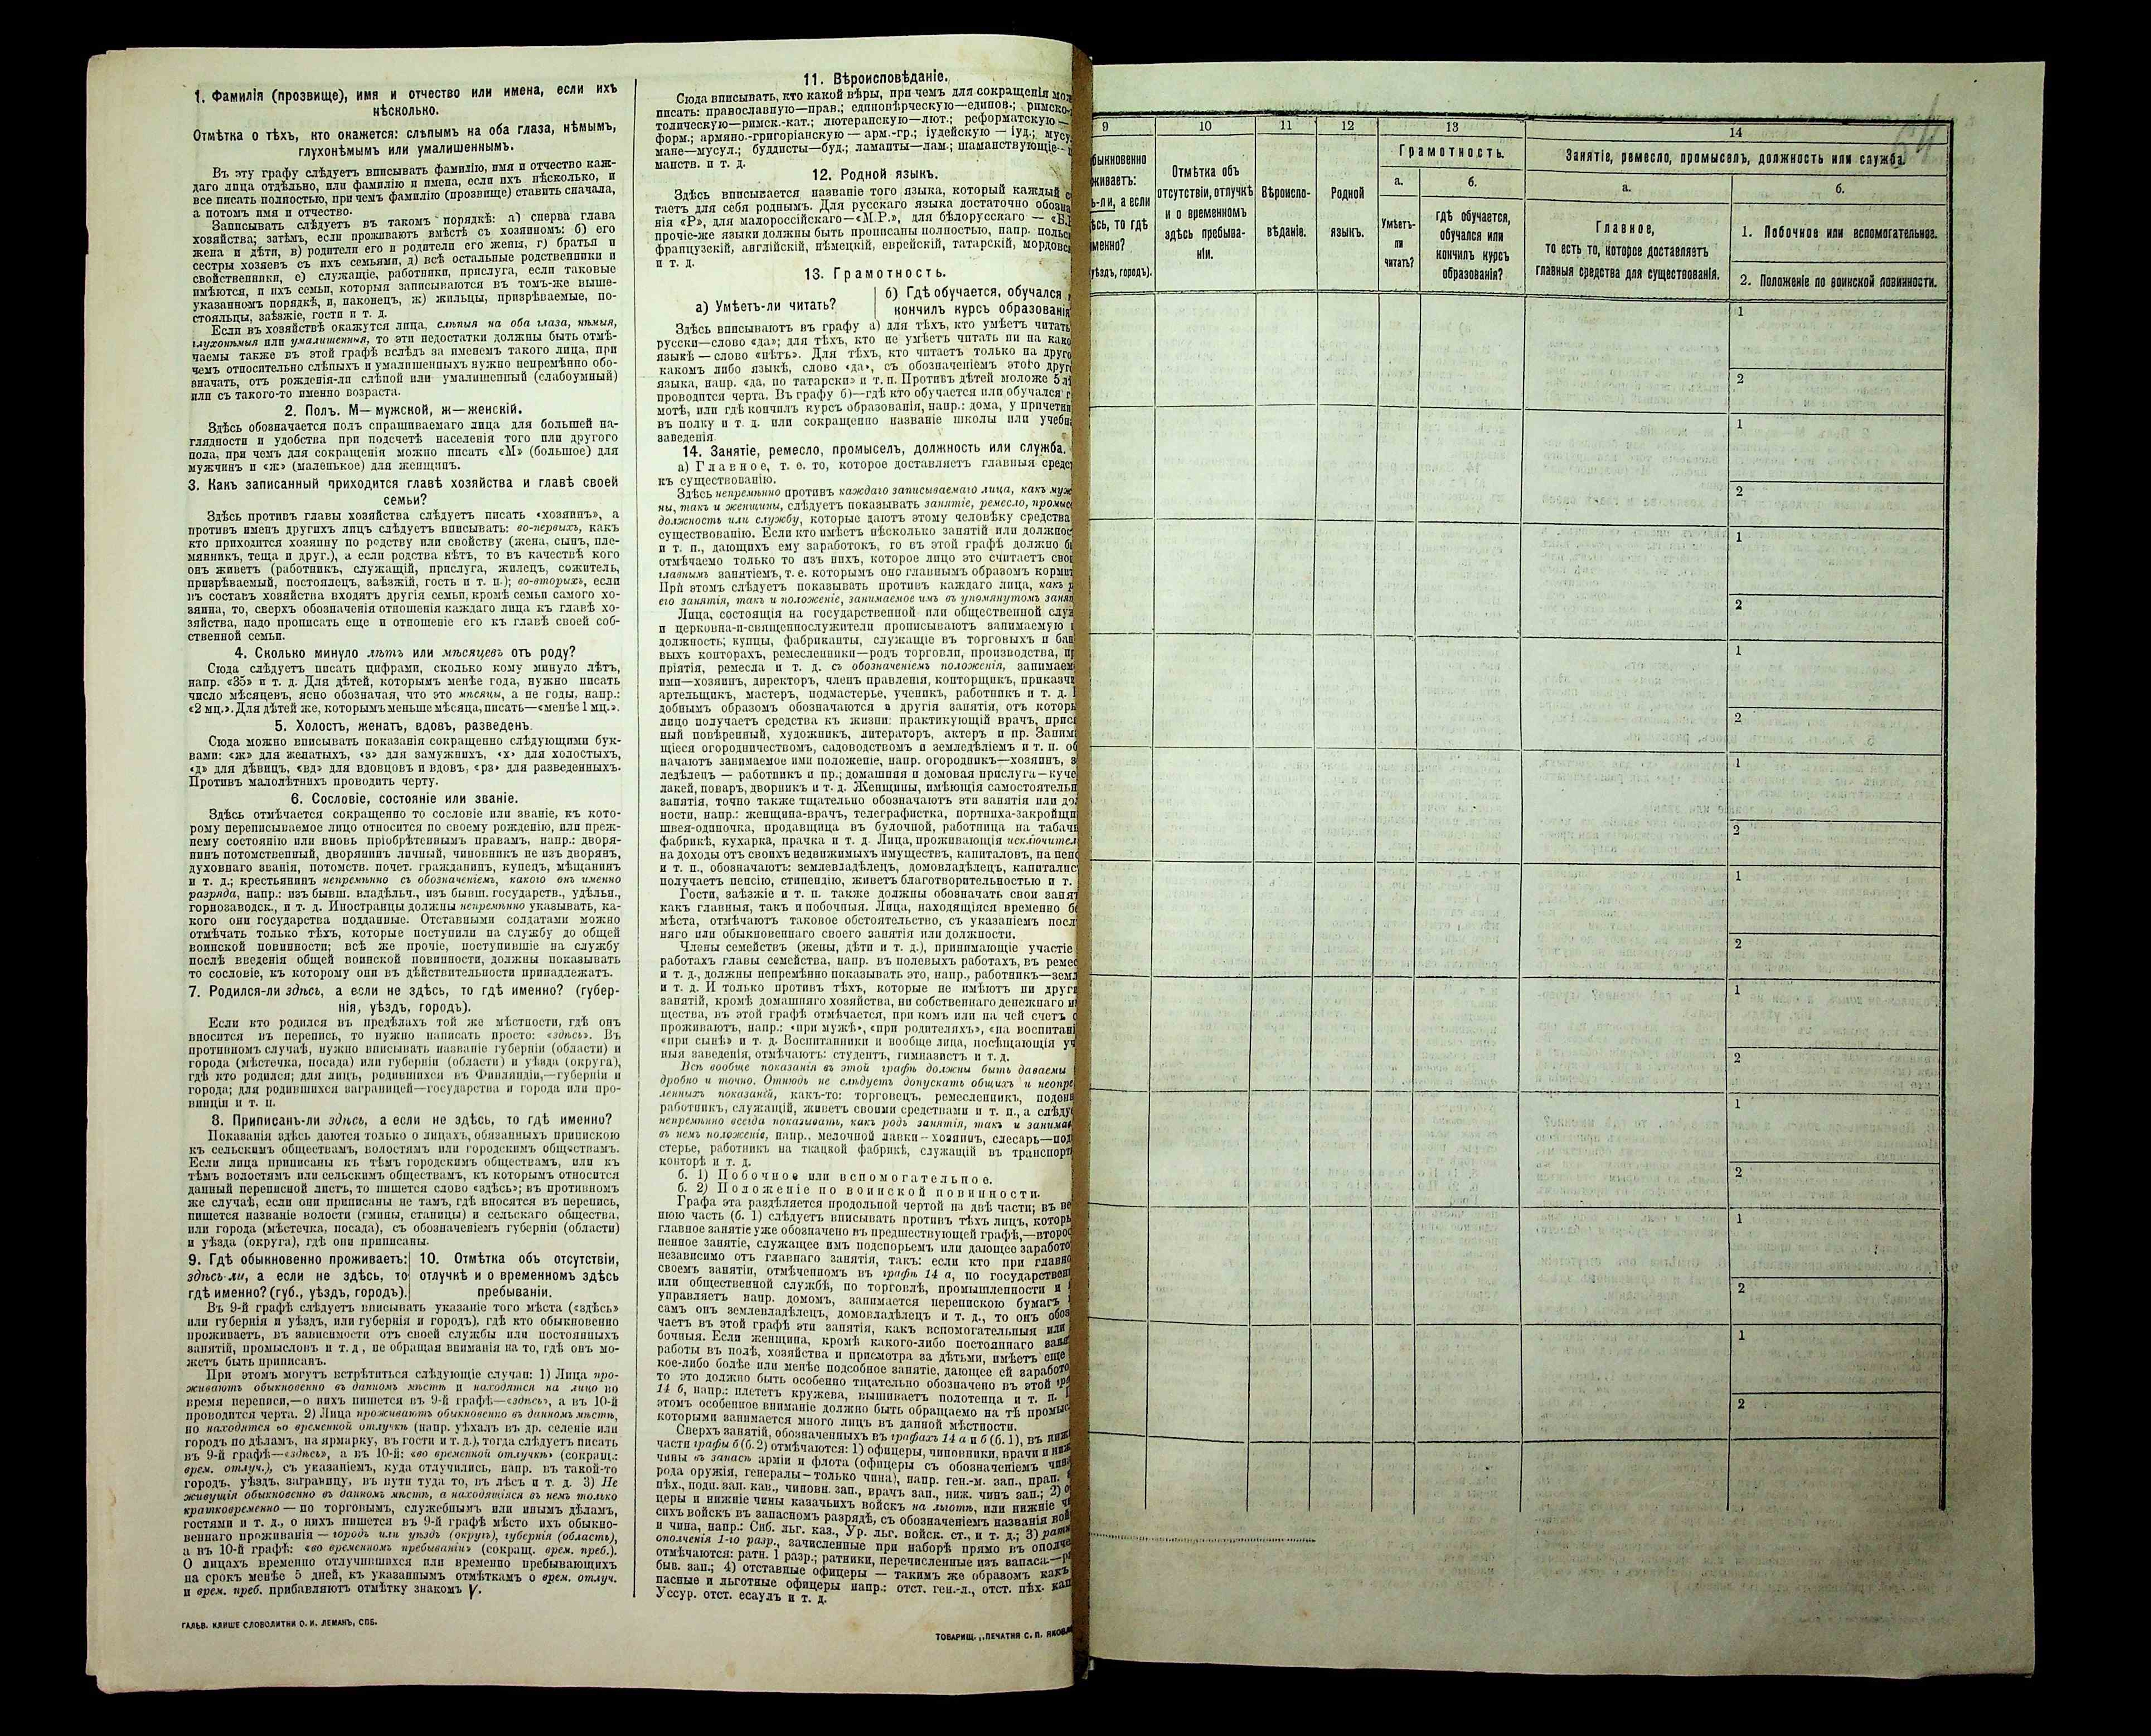 1. Фамилія (прозвище), имя и отчество или имена, если ихъ
нѣсколько.
Отмѣтка о тѣхъ, кто окажется: слѣпымъ на оба глаза, нѣмымъ,
глухонѣмымъ или умалишеннымъ.
Въ эту графу слѣдуетъ вписывать фамилію, имя и отчество каж-
даго лица отдѣльно, или фамилію и имена, если ихъ нѣсколько, и
все писать полностью, при чемъ фамилію (прозвище) ставить сначала,
а потомъ имя и отчество.
Записывать слѣдуетъ въ такомъ порядкѣ: а) сперва глава
хозяйства; затѣмъ, если проживаютъ вмѣстѣ съ хозяиномъ: б) его
жена и дѣти, в) родители его и родители его жены, г) братья и
сестры хозяевъ съ ихъ семьями, д) всѣ остальные родственники и
свойственники, е) служащіе, работники, прислуга, если таковые
имѣются, и ихъ семьи, которыя записываются въ томъ-же выше-
указанномъ порядкѣ, и, наконецъ, ж) жильцы, призрѣваемые, по-
стояльцы, заѣзжіе, гости и т. д.
Если въ хозяйствѣ окажутся лица, слѣпыя на оба глаза, нѣмыя,
глухонѣмыя или умалишенныя, то эти недостатки должны быть отмѣ-
чаемы также въ этой графѣ вслѣдъ за именемъ такого лица, при
чемъ относительно слѣпыхъ и умалишенныхъ нужно непремѣнно обо-
значать, отъ рожденія-ли слѣпой или умалишенный (слабоумный)
или съ такого-то именно возраста.
2. Полъ. М—мужской, ж—женскій.
Здѣсь обозначается полъ спрашиваемаго лица для большей на-
глядности и удобства при подсчетѣ населенія того или другого
пола, при чемъ для сокращенія можно писать «М» (большое) для
мужчинъ и «ж» (маленькое) для женщинъ.
3. Какъ записанный приходится главѣ хозяйства и главѣ своей
семьи?
Здѣсь противъ главы хозяйства слѣдуетъ писать «хозяинъ», а
противъ именъ другихъ лицъ слѣдуетъ вписывать: во-первыхъ, какъ
кто приходится хозяину по родству или свойству (жена, сынъ, пле-
мянникъ, теща и друг.), а если родства нѣтъ, то въ качествѣ кого
онъ живетъ (работникъ, служащій, прислуга, жилецъ, сожитель,
призрѣваемый, постоялецъ, заѣзжій, гость и т. п.); во-вторыхъ, если
въ составъ хозяйства входятъ другія семьи, кромѣ семьи самого хо-
зяина, то, сверхъ обозначенія отношенія каждаго лица къ главѣ хо-
зяйства, надо прописать еще и отношеніе его къ главѣ своей соб-
ственной семьи.
4. Сколько минуло лѣтъ или мѣсяцевъ отъ роду?
Сюда слѣдуетъ писать цифрами, сколько кому минуло лѣтъ,
напр. «35» и т. д. Для дѣтей, которымъ менѣе года, нужно писать
число мѣсяцевъ, ясно обозначая, что это мѣсяцы, а не годы, напр.:
«2 мц.». Для дѣтей же, которымъ меньше мѣсяца, писать—«менѣе 1 мц.».
5. Холостъ, женатъ, вдовъ, разведенъ.
Сюда можно вписывать показанія сокращенно слѣдующими бук-
вами: «ж» для женатыхъ, «з» для замужнихъ, «х» для холостыхъ,
«д» для дѣвицъ, «вд» для вдовцовъ и вдовъ, «рз» для разведенныхъ.
Противъ малолѣтнихъ проводить черту.
6. Сословіе, состояніе или званіе.
Здѣсь отмѣчается сокращенно то сословіе или званіе, къ кото-
рому переписываемое лицо относится по своему рожденію, или преж-
нему состоянію или вновь пріобрѣтеннымъ правамъ, напр.: дворя-
нинъ потомственный, дворянинъ личный, чиновникъ не изъ дворянъ,
духовнаго званія, потомств. почет. гражданинъ, купецъ, мѣщанинъ
и т. д.; крестьянинъ непремѣнно съ обозначеніемъ, какого онъ именно
разряда, напр.: изъ бывш. владѣльч., изъ бывш. государств., удѣльн.,
горнозаводск., и т. д. Иностранцы должны непремѣнно указывать, ка-
кого они государства подданные. Отставными солдатами можно
отмѣчать только тѣхъ, которые поступили на службу до общей
воинской повинности; всѣ же прочіе, поступившіе на службу
послѣ введенія общей воинской повинности, должны показывать
то сословіе, къ которому они въ дѣйствительности принадлежатъ.
7. Родился-ли здѣсь, а если не здѣсь, то гдѣ именно? (губер-
нія, уѣздъ, городъ).
Если кто родился въ предѣлахъ той же мѣстности, гдѣ онъ
вносится въ перепись, то нужно написать просто: «здѣсь». Въ
противномъ случаѣ, нужно вписывать названіе губерніи (области) и
города (мѣстечка, посада) или губерніи (области) и уѣзда (округа),
гдѣ кто родился; для лицъ, родившихся въ Финляндіи,—губерніи и
города; для родившихся заграницей—государства и города или про-
винціи и т. п.
8. Приписанъ-ли здѣсь, а если не здѣсь, то гдѣ именно?
Показанія здѣсь даются только о лицахъ, обязанныхъ припискою
къ сельскимъ обществамъ, волостямъ или городскимъ обществамъ.
Если лица приписаны къ тѣмъ городскимъ обществамъ, или къ
тѣмъ волостямъ или сельскимъ обществамъ, къ которымъ относится
данный переписной листъ, то пишется слово «здѣсь»; въ противномъ
же случаѣ, если они приписаны не тамъ, гдѣ вносятся въ перепись,
пишется названіе волости (гмины, станицы) и сельскаго общества,
или города (мѣстечка, посада), съ обозначеніемъ губерніи (области)
и уѣзда (округа), гдѣ они приписаны.
9. Гдѣ обыкновенно проживаетъ:
здѣсь-ли, а если не здѣсь, то
гдѣ именно? (губ., уѣздъ, городъ).
10. Отмѣтка объ отсутствіи,
отлучкѣ и о временномъ здѣсь
пребываніи.
Въ 9-й графѣ слѣдуетъ вписывать указаніе того мѣста («здѣсь»
или губернія и уѣздъ, или губернія и городъ), гдѣ кто обыкновенно
проживаетъ, въ зависимости отъ своей службы или постоянныхъ
занятій, промысловъ и т. д., не обращая вниманія на то, гдѣ онъ мо-
жетъ быть приписанъ.
При этомъ могутъ встрѣтиться слѣдующіе случаи: 1) Лица про-
живаютъ обыкновенно въ данномъ мѣстѣ и находятся на лицо во
время переписи,—о нихъ пишется въ 9-й графѣ—«здѣсь», а въ 10-й
проводится черта. 2) Лица проживаютъ обыкновенно въ данномъ мѣстѣ,
но находятся во временной отлучкѣ (напр. уѣхалъ въ др. селеніе или
городъ по дѣламъ, на ярмарку, въ гости и т. д.), тогда слѣдуетъ писать
въ 9-й графѣ—«здѣсь», а въ 10-й: «во временной отлучкѣ» (сокращ.:
врем. отлуч.), съ указаніемъ, куда отлучились, напр. въ такой-то
городъ, уѣздъ, заграницу, въ пути туда то, въ лѣсъ и т. д. 3) Не
живущія обыкновенно въ данномъ мѣстѣ, а находящіяся въ немъ только
кратковременно — по торговымъ, служебнымъ или инымъ дѣламъ,
гостями и т. д., о нихъ пишется въ 9-й графѣ мѣсто ихъ обыкно-
веннаго проживанія — городъ или уѣздъ (округъ), губернія (область),
а въ 10-й графѣ: «во временномъ пребываніи» (сокращ. врем. преб.).
О лицахъ временно отлучившихся или временно пребывающихъ
на срокъ менѣе 5 дней, къ указаннымъ отмѣткамъ о врем. отлуч.
и врем. преб. прибавляютъ отмѣтку знакомъ V.
ГАЛЬВ. КЛИШЕ СЛОВОЛИТНИ О. И. ЛЕМАНЪ, СПБ.
11. Вѣроисповѣданіе.
Сюда вписывать, кто какой вѣры, при чемъ для сокращенія мож
писать: православную—прав.; единовѣрческую—единов.; римско-
толическую—римск.-кат.; лютеранскую—лют.; реформатскую—
форм.; армяно-григоріанскую — арм.-гр.; іудейскую — іуд.; мусу
мане—мусул.; буддисты—буд.; ламаиты—лам.; шаманствующіе—
манств. и т. д.
12. Родной языкъ.
Здѣсь вписывается названіе того языка, который каждый с
таетъ для себя роднымъ. Для русскаго языка достаточно обозна
нія «Р», для малороссійскаго—«М.Р.», для бѣлорусскаго — «Б.
прочіе-же языки должны быть прописаны полностью, напр. польс
французскій, англійскій, нѣмецкій, еврейскій, татарскій, мордовс
и т. д.
13. Грамотность.
а) Умѣетъ-ли читать?
б) Гдѣ обучается, обучался
кончилъ курсъ образованія
Здѣсь вписываютъ въ графу а) для тѣхъ, кто умѣетъ читать
русски—слово «да»; для тѣхъ, кто не умѣетъ читать ни на како
языкѣ — слово «нѣтъ». Для тѣхъ, кто читаетъ только на друго
какомъ либо языкѣ, слово «да», съ обозначеніемъ этого друг
языка, напр. «да, по татарски» и т. п. Противъ дѣтей моложе 5 лѣ
проводится черта. Въ графу б)—гдѣ кто обучается или обучался г
мотѣ, или гдѣ кончилъ курсъ образованія, напр.: дома, у причетни
въ полку и т. д. или сокращенно названіе школы или учебн
заведенія
14. Занятіе, ремесло, промыселъ, должность или служба.
а) Главное, т. е. то, которое доставляетъ главныя средст
къ существованію.
Здѣсь непремѣнно противъ каждаго записываемаго лица, какъ муж
ны, такъ и женщины, слѣдуетъ показывать занятіе, ремесло, промыс
должность или службу, которые даютъ этому человѣку средства
существованію. Если кто имѣетъ нѣсколько занятій или должнос
и т. п., дающихъ ему заработокъ, то въ этой графѣ должно б
отмѣчаемо только то изъ нихъ, которое лицо это считаетъ сво
главнымъ занятіемъ, т. е. которымъ оно главнымъ образомъ кормит
При этомъ слѣдуетъ показывать противъ каждаго лица, какъ р
его занятія, такъ и положеніе, занимаемое имъ въ упомянутомъ занят
Лица, состоящія на государственной или общественной служ
и церковна-и-священнослужители прописываютъ занимаемую
должность; купцы, фабриканты, служащіе въ торговыхъ и бан
выхъ конторахъ, ремесленники—родъ торговли, производства, пр
пріятія, ремесла и т. д. съ обозначеніемъ положенія, занимаем
ими—хозяинъ, директоръ, членъ правленія, конторщикъ, приказчи
артельщикъ, мастеръ, подмастерье, ученикъ, работникъ и т. д.
добнымъ образомъ обозначаются и другія занятія, отъ которы
лицо получаетъ средства къ жизни: практикующій врачъ, прис
ный повѣренный, художникъ, литераторъ, актеръ и пр. Заним
щіеся огородничествомъ, садоводствомъ и земледѣліемъ и т. п. об
начаютъ занимаемое ими положеніе, напр. огородникъ—хозяинъ, з
ледѣлецъ — работникъ и пр.; домашняя и домовая прислуга—куче
лакей, поваръ, дворникъ и т. д. Женщины, имѣющія самостоятельн
занятія, точно также тщательно обозначаютъ эти занятія или до
ности, напр.: женщина-врачъ, телеграфистка, портниха-закройщи
швея-одиночка, продавщица въ булочной, работница на табачн
фабрикѣ, кухарка, прачка и т. д. Лица, проживающія исключител
на доходы отъ своихъ недвижимыхъ имуществъ, капиталовъ, на пенс
и т. п., обозначаютъ: землевладѣлецъ, домовладѣлецъ, капиталис
получаетъ пенсію, стипендію, живетъ благотворительностью и т.
Гости, заѣзжіе и т. п. также должны обозначать свои занят
какъ главныя, такъ и побочныя. Лица, находящіяся временно б
мѣста, отмѣчаютъ таковое обстоятельство, съ указаніемъ посл
няго или обыкновеннаго своего занятія или должности.
Члены семействъ (жены, дѣти и т. д.), принимающіе участіе
работахъ главы семейства, напр. въ полевыхъ работахъ, въ ремес
и т. д., должны непремѣнно показывать это, напр., работникъ—земл
и т. д. И только противъ тѣхъ, которые не имѣютъ ни други
занятій, кромѣ домашняго хозяйства, ни собственнаго денежнаго и
щества, въ этой графѣ отмѣчается, при комъ или на чей счетъ о
проживаютъ, напр.: «при мужѣ», «при родителяхъ», «на воспитані
«при сынѣ» и т. д. Воспитанники и вообще лица, посѣщающія уч
ныя заведенія, отмѣчаютъ: студентъ, гимназистъ и т. д.
Всѣ вообще показанія въ этой графѣ должны быть даваемы
дробно и точно. Отнюдь не слѣдуетъ допускать общихъ и неопре
ленныхъ показаній, какъ-то: торговецъ, ремесленникъ, поденн
работникъ, служащій, живетъ своими средствами и т. п., а слѣду
непремѣнно всегда показывать, какъ родъ занятія, такъ и занима
въ немъ положеніе, напр., мелочной лавки — хозяинъ, слесарь—под
стерье, работникъ на ткацкой фабрикѣ, служащій въ транспорт
конторѣ и т. д.
б. 1) Побочное или вспомогательное.
б. 2) Положеніе по воинской повинности.
Графа эта раздѣляется продольной чертой на двѣ части; въ ве
нюю часть (б. 1) слѣдуетъ вписывать противъ тѣхъ лицъ, которы
главное занятіе уже обозначено въ предшествующей графѣ,—второс
пенное занятіе, служащее имъ подспорьемъ или дающее заработо
независимо отъ главнаго занятія, такъ: если кто при главно
своемъ занятіи, отмѣченномъ въ графѣ 14 а, по государствен
или общественной службѣ, по торговлѣ, промышленности и
управляетъ напр. домомъ, занимается перепискою бумагъ
самъ онъ землевладѣлецъ, домовладѣлецъ и т. д., то онъ обоз
чаетъ въ этой графѣ эти занятія, какъ вспомогательныя или
бочныя. Если женщина, кромѣ какого-либо постояннаго заня
работы въ полѣ, хозяйства и присмотра за дѣтьми, имѣетъ еще
кое-либо болѣе или менѣе подсобное занятіе, дающее ей заработо
то это должно быть особенно тщательно обозначено въ этой гра
14 б, напр.: плететъ кружева, вышиваетъ полотенца и т. п.
этомъ особенное вниманіе должно быть обращаемо на тѣ промыс
которыми занимается много лицъ въ данной мѣстности.
Сверхъ занятій, обозначенныхъ въ графахъ 14 а и б (б. 1), въ нижн
части графы б (б. 2) отмѣчаются: 1) офицеры, чиновники, врачи и ниж
чины въ запасѣ арміи и флота (офицеры съ обозначеніемъ чина
рода оружія, генералы—только чина), напр. ген.-м. зап., прап.
пѣх., подп. зап. кав., чиновн. зап., врачъ зап., ниж. чинъ зап.; 2) о
церы и нижніе чины казачьихъ войскъ на льготѣ, или нижніе ч
сихъ войскъ въ запасномъ разрядѣ, съ обозначеніемъ названія вой
и чина, напр.: Сиб. льг. каз., Ур. льг. войск. ст., и т. д.; 3) ратн
ополченія 1-го разр., зачисленные при наборѣ прямо въ ополче
отмѣчаются: ратн. 1 разр.; ратники, перечисленные изъ запаса.—р
быв. зап.; 4) отставные офицеры — такимъ же образомъ какъ
пасные и льготные офицеры напр.: отст. ген.-л., отст. пѣх. кап
Уссур. отст. есаулъ и т. д.
ТОВАРИЩ. „ПЕЧАТНЯ С. П. ЯКОВЛ
64
9
10
11
12
13
14
быкновенно
живаетъ:
ь-ли, а если
ѣсь, то гдѣ
менно?
уѣздъ, городъ).
Отмѣтка объ
отсутствіи, отлучкѣ
и о временномъ
здѣсь пребыва-
ніи.
Вѣроиспо-
вѣданіе.
Родной
языкъ.
Грамотность.
а.
Умѣетъ-
ли
читать?
б.
гдѣ обучается,
обучался или
кончилъ курсъ
образованія?
Занятіе, ремесло, промыселъ, должность или служба.
а.
Главное,
то есть то, которое доставляетъ
главныя средства для существованія.
б.
1. Побочное или вспомогательное.
2. Положеніе по воинской повинности.
1
2
1
2
1
2
1
2
1
2
1
2
1
2
1
2
1
2
1
2